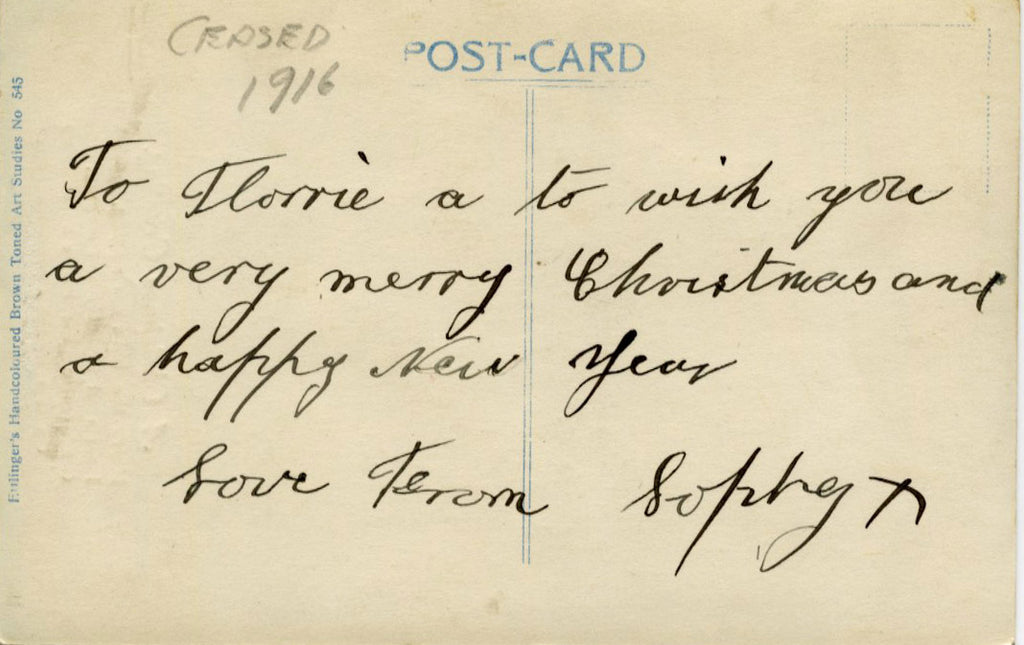 CEASED
1916
POST-CARD
Ettlinger's Handcoloured Brown Toned Art Studies No 545
To Florrie a to wish you
a very merry Christmas and
a happy New Year
Love From Sophy x